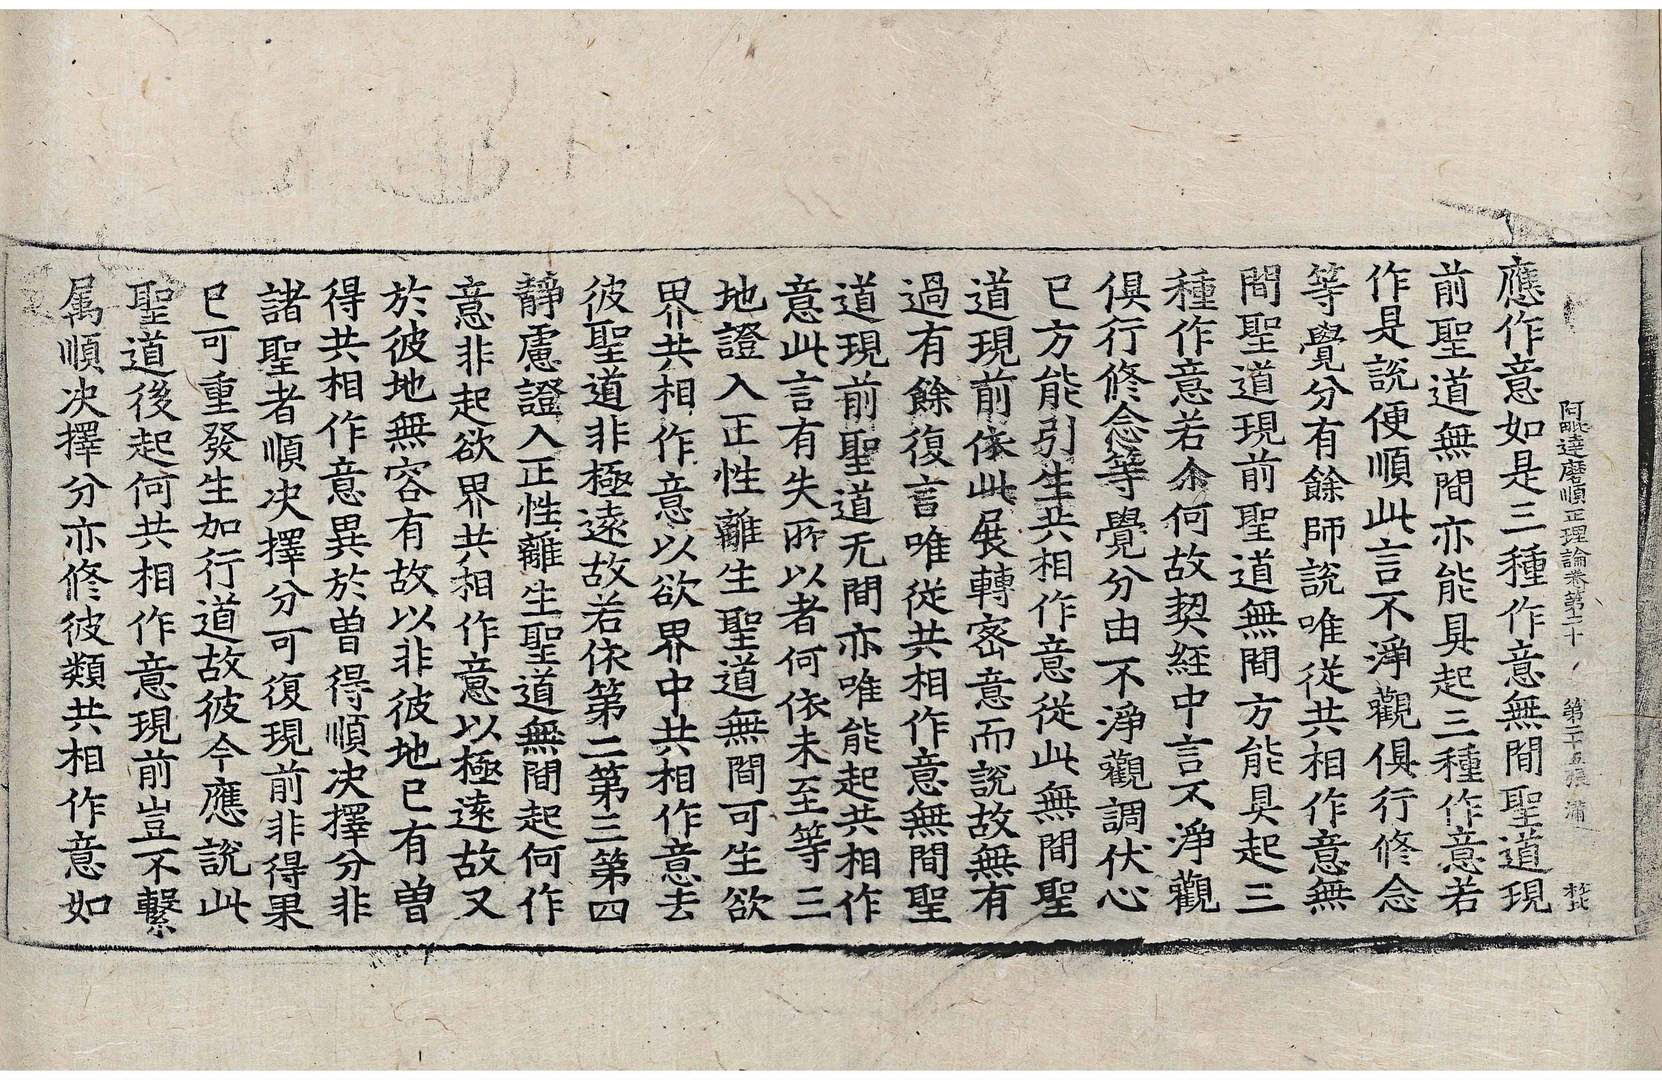 阿毗達磨順正理論卷第二十 第二十五張 滿 㭰
應作意如是三種作意無間聖道現
前聖道無間亦能具起三種作意若
作是說便順此言不淨觀俱行修念
等覺分有餘師說唯從共相作意無
間聖道現前聖道無間方能具起三
種作意若尒何故契經中言不淨觀
俱行修念等覺分由不淨觀調伏心
已方能引生共相作意從此無間聖
道現前依此展轉密意而說故無有
過有餘復言唯從共相作意無間聖
道現前聖道无間亦唯能起共相作
意此言有失所以者何依未至等三
地證入正性離生聖道無間可生欲
界共相作意以欲界中共相作意去
彼聖道非極遠故若依第二第三第四
靜慮證入正性離生聖道無間起何作
意非起欲界共相作意以極遠故又
於彼地無容有故以非彼地已有曾
得共相作意異於曾得順决擇分非
諸聖者順决擇分可復現前非得果
已可重發生如行道故彼今應說此
聖道後起何共相作意現前豈不繫
属順决擇分亦修彼類共相作意如